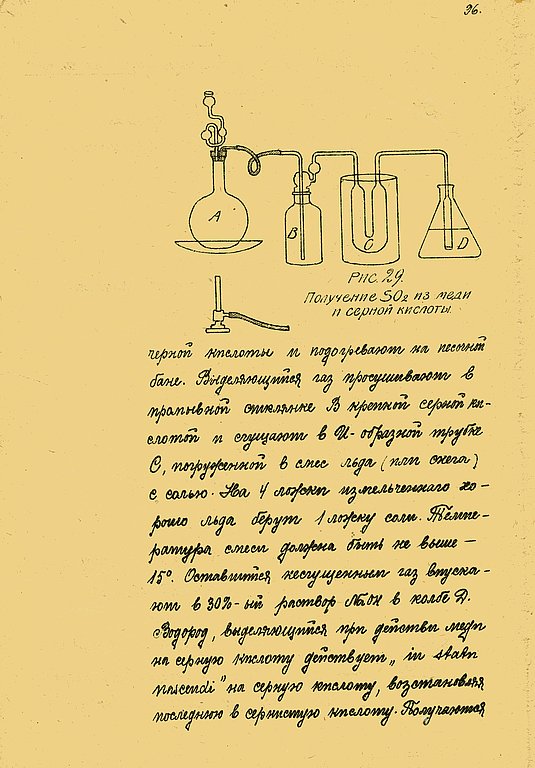 36.
A
B
C
D
Рис. 29.
Получение SO2 из меди
и серной кислоты.
серной кислоты и подогревают на песочной
бане. Выделяющийся газ просушивают в
промывной стклянке В крепкой серной ки-
слотой и сгущают в U-образной трубке
С, погруженной в смес льда (или снега)
с солью. На 4 ложки измельченнаго хо-
рошо льда берут 1 ложку соли. Темпе-
ратура смеси должна быть не выше —
15°. Оставшийся несгущенным газ впуска-
ют в 30%-ый раствор NaOH в колбе D.
Водород, выделяющийся при действи меди
на серную кислоту действует „in statu
nascendi" на серную кислоту, возстановляя
последнюю в сернистую кислоту. Получаются